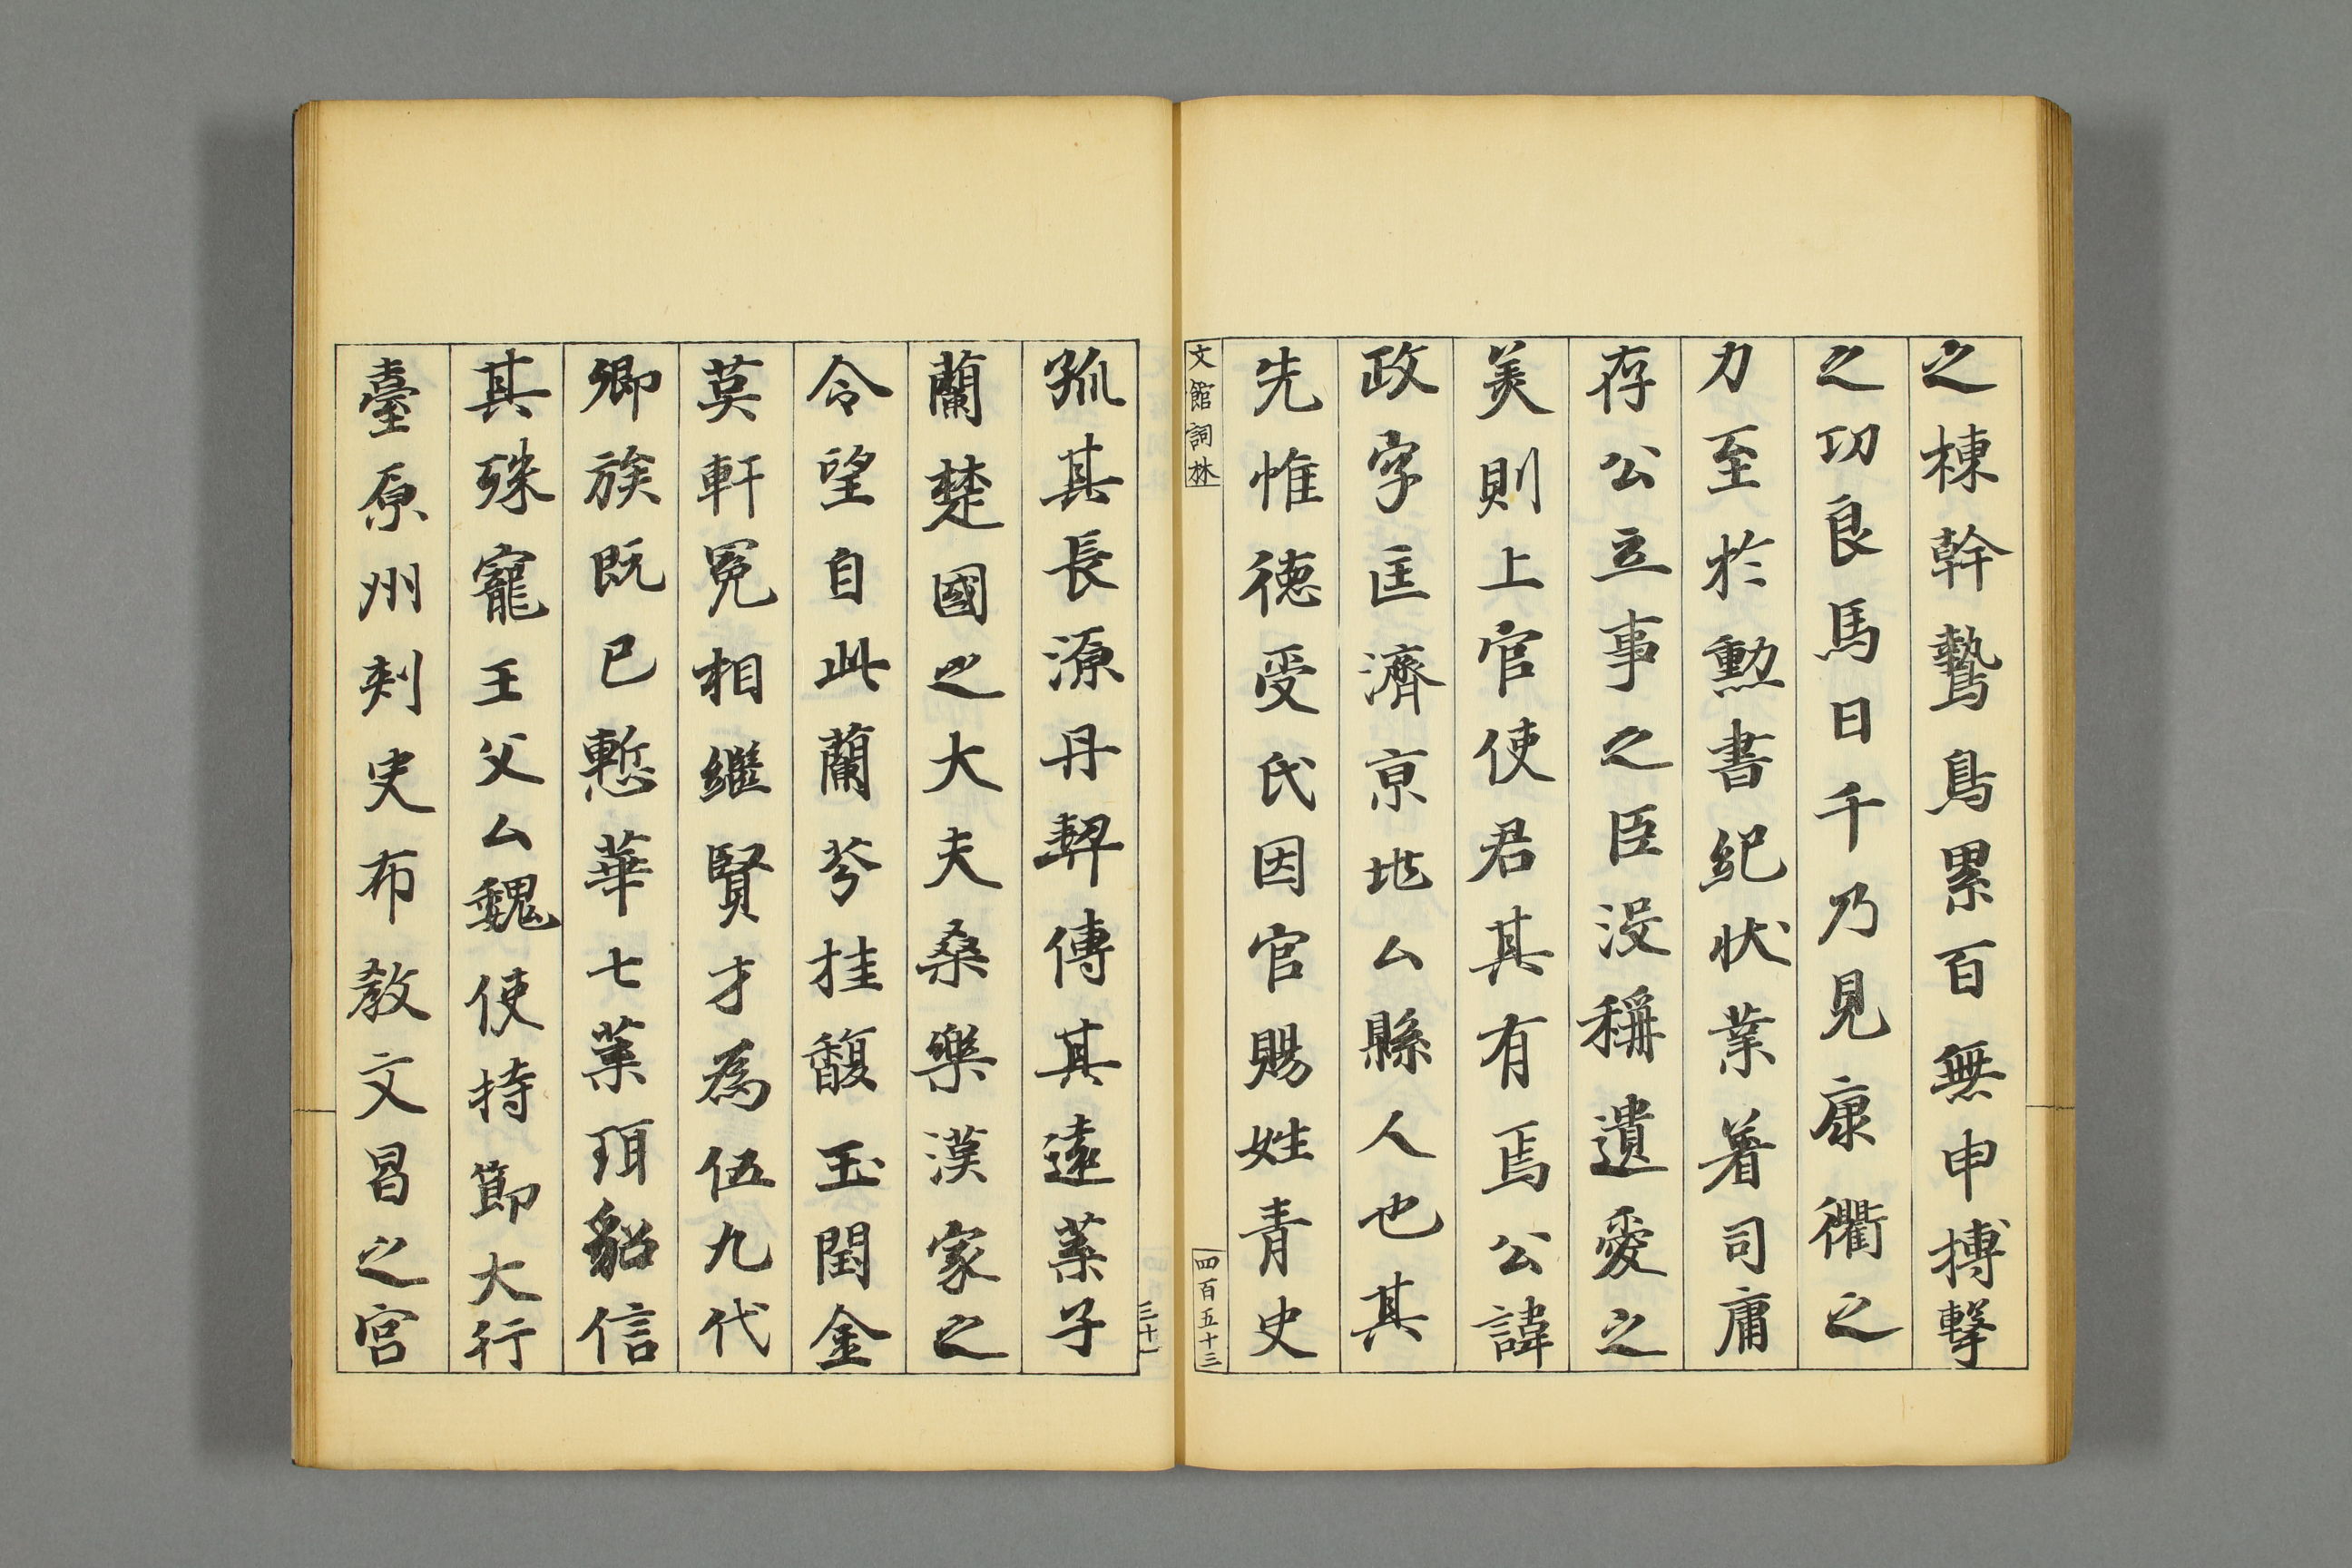 之棟幹鷙鳥累百無申搏擊
之功良馬日千乃見康衢之
力至於勳書紀状業著司庸
存公立事之臣没稱遺愛之
美則上官使君其有焉公諱
政字匡濟京地厶縣人也其
先惟徳受氏因官賜姓青史
文館詞林
四百五十三
三十一
狐其長源丹耕傳其遠葉子
蘭楚國之大夫桑樂漢家之
令望自此蘭芩挂馥玉閏金
莫軒冕相繼賢才為伍九代
卿族既已慙華七葉珥貂信
其殊寵王父厶魏使持節大行
臺原州刾史布教文昌之宮